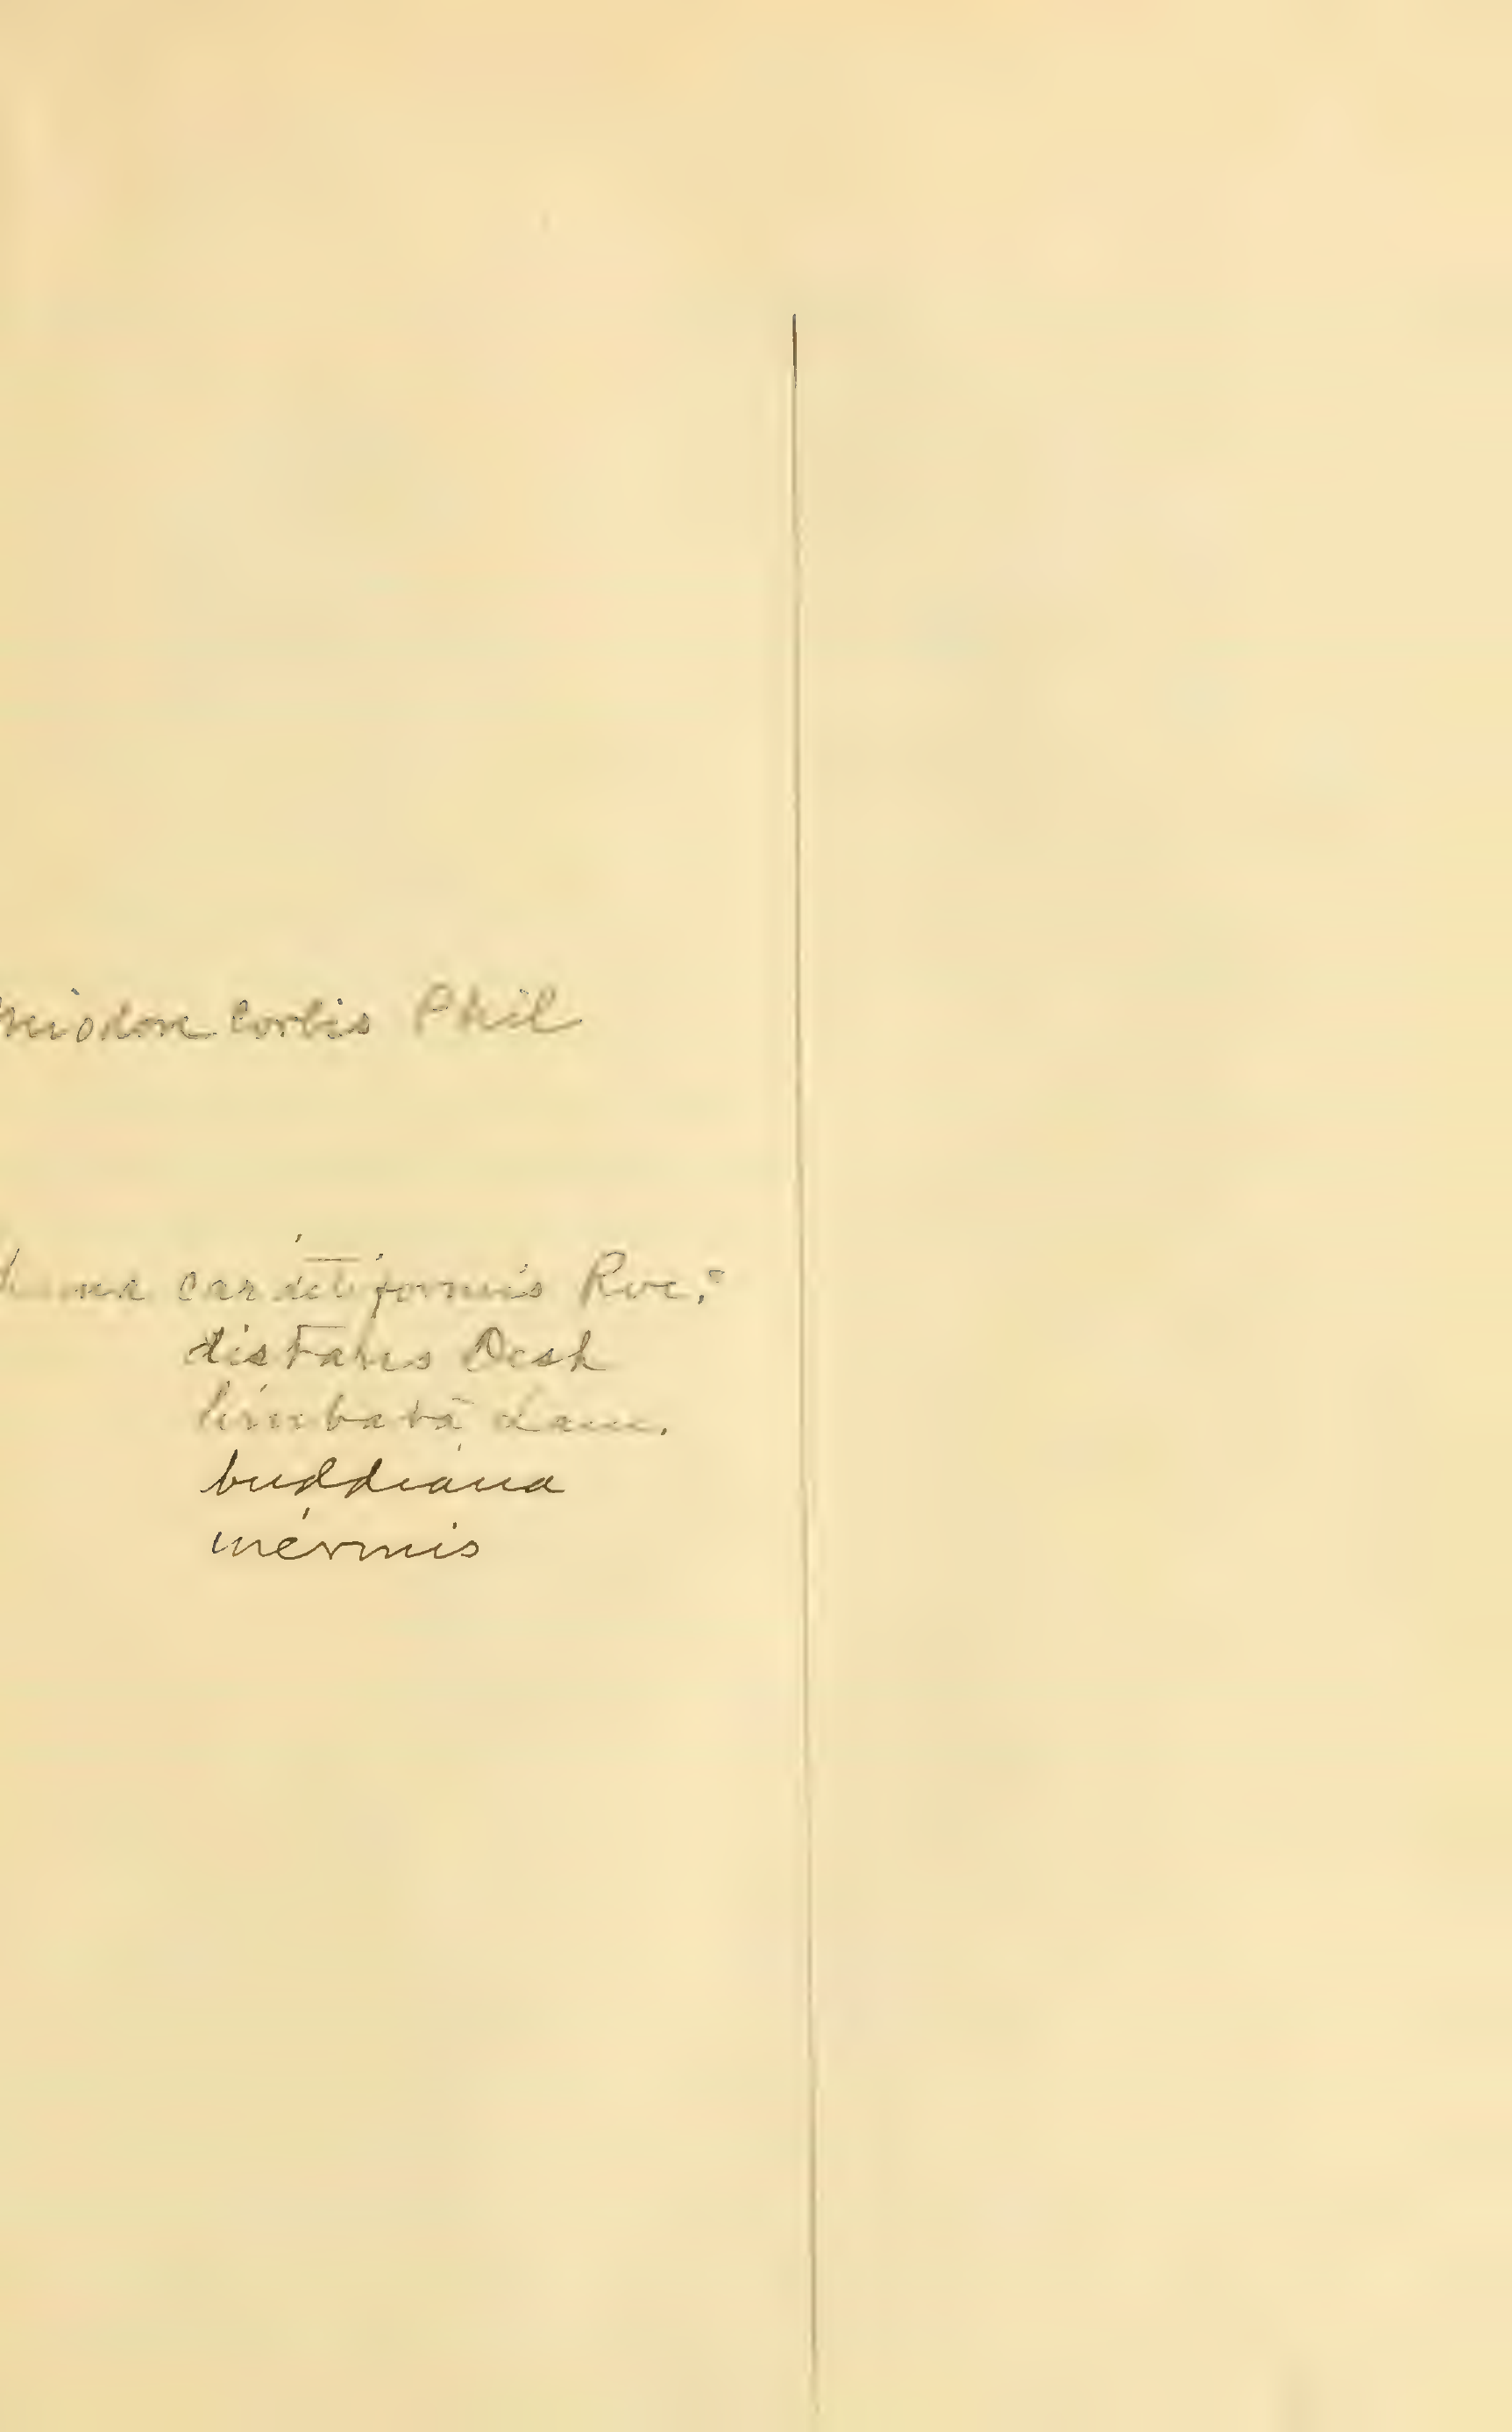 miodon corbis Phil
hama carditiformis Rve.?
distans Desh
limbata Lam.
buddiana
inermis